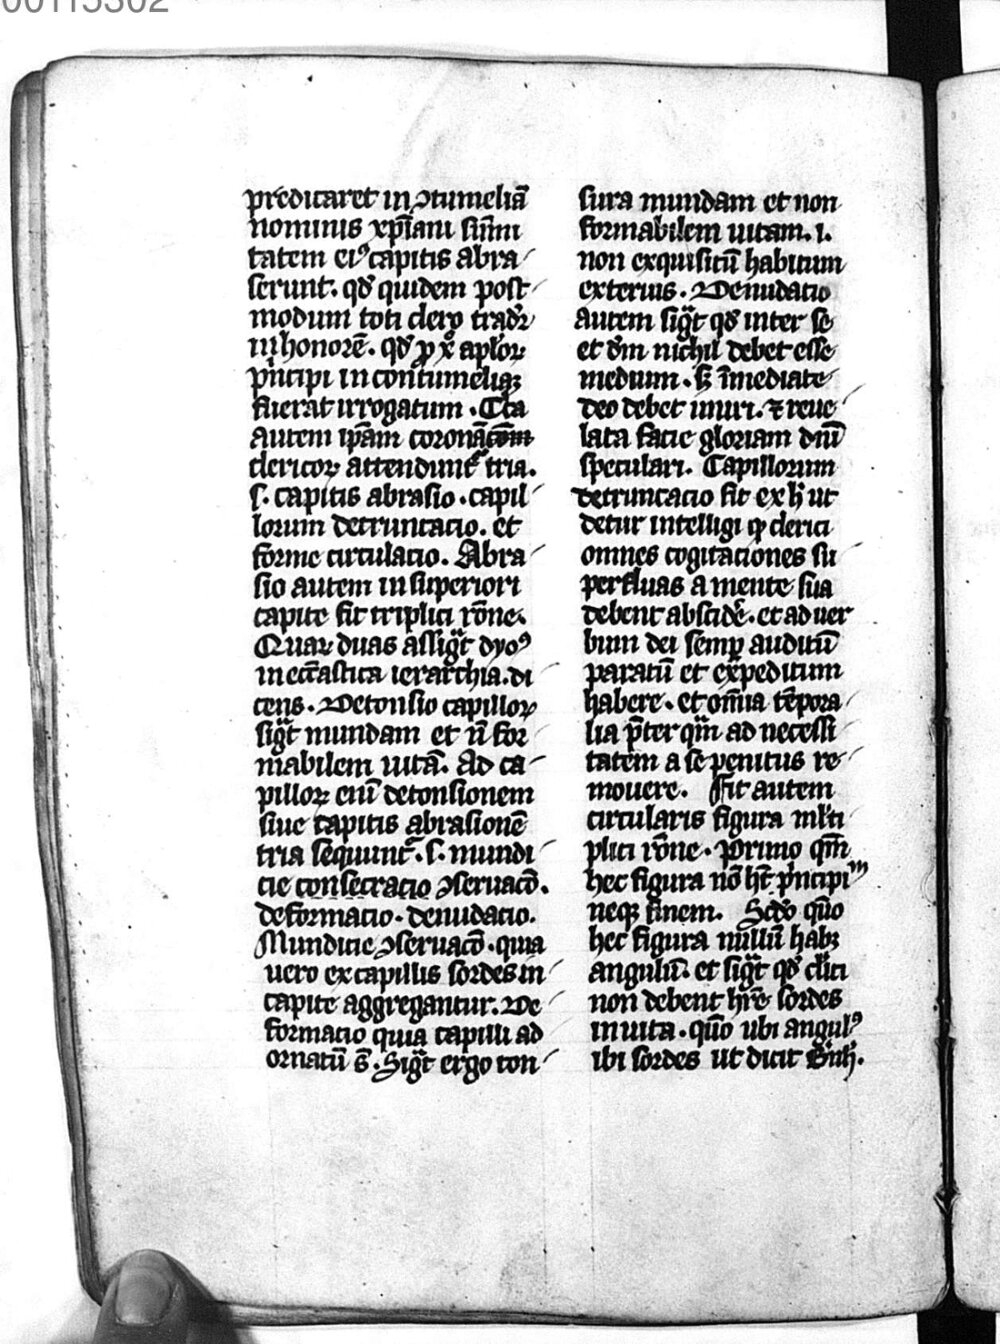 00115302
predicaret in ꝯtumeliã
nominis xp̃iani sũmi
tatem eiꝰ capitis abra
serunt. qđ quidem post
modum toti clero tradr̃
in honorẽ. qđ ꝓ xº apl̃oꝝ
pͥncipi in contumeliaꝫ
fuerat irrogatum. Cca
autem ip̃am coronãcõm
clericoꝝ attendunt᷑ tria.
s. capitis abrasio. capil
lorum detruncacio. et
forme circulacio. Abra
sio autem in superiori
capite fit triplici rõne.
Quaꝝ duas assigᷓt dyoꝰ
in eccl̃astica ierarchia. di
cens. Detonsio capilloꝝ
sigᷓt mundam et nõ for
mabilem uitã. Ad ca
pilloꝝ eni̅ detonsionem
siue capitis abrasionẽ
tria sequunt᷑. s. mundi
cie consecracio ꝯseruacõ.
deformacio. denudacio.
Mundicie ꝯseruacõ. quia
uero ex capillis sordes in
capite aggregantur. De
formacio quia capilli ad
ornatũ s̃. Sigᷓt ergo ton
sura mundam et non
formabilem uitam. i.
non exquisitũ habitum
exterius. Denudacio
autem sigᷓt qđ inter se
et dm̃ nichil debet esse
medium. sꝫ ĩmediate
deo debet uniri. ⁊ reue
lata facie gloriam dñi
speculari. Capillorum
detruncacio fit ex h̾ ut
detur intelligi ꝙ clerici
omnes cogitaciones su
perfluas a mente sua
debent abscidẽ. et ad uer
bum dei semꝑ auditũ
paratũ et expeditum
habere. et om̃ia tẽpora
lia p̃ter qᷓm ad necessi
tatem a se penitus re
mouere. Fit autem
circularis figura ml̾ti
plici rõne. Primo qm̃
hec figura nõ hт̃ pͥncipiᵐ
neqꝫ finem. Scđo qm̃
hec figura nullũ habꝫ
angulũ. et sigᷓt qđ cl̾ici
non debent hr̃e sordes
in uita. qm̃ ubi angulꝰ
ibi sordes ut dicit Bñh̾.